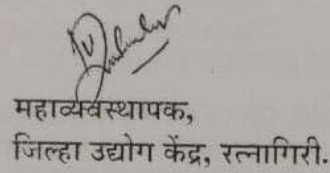 महाव्यवस्थापक,
जिल्हा उद्योग केंद्र, रत्नागिरी.